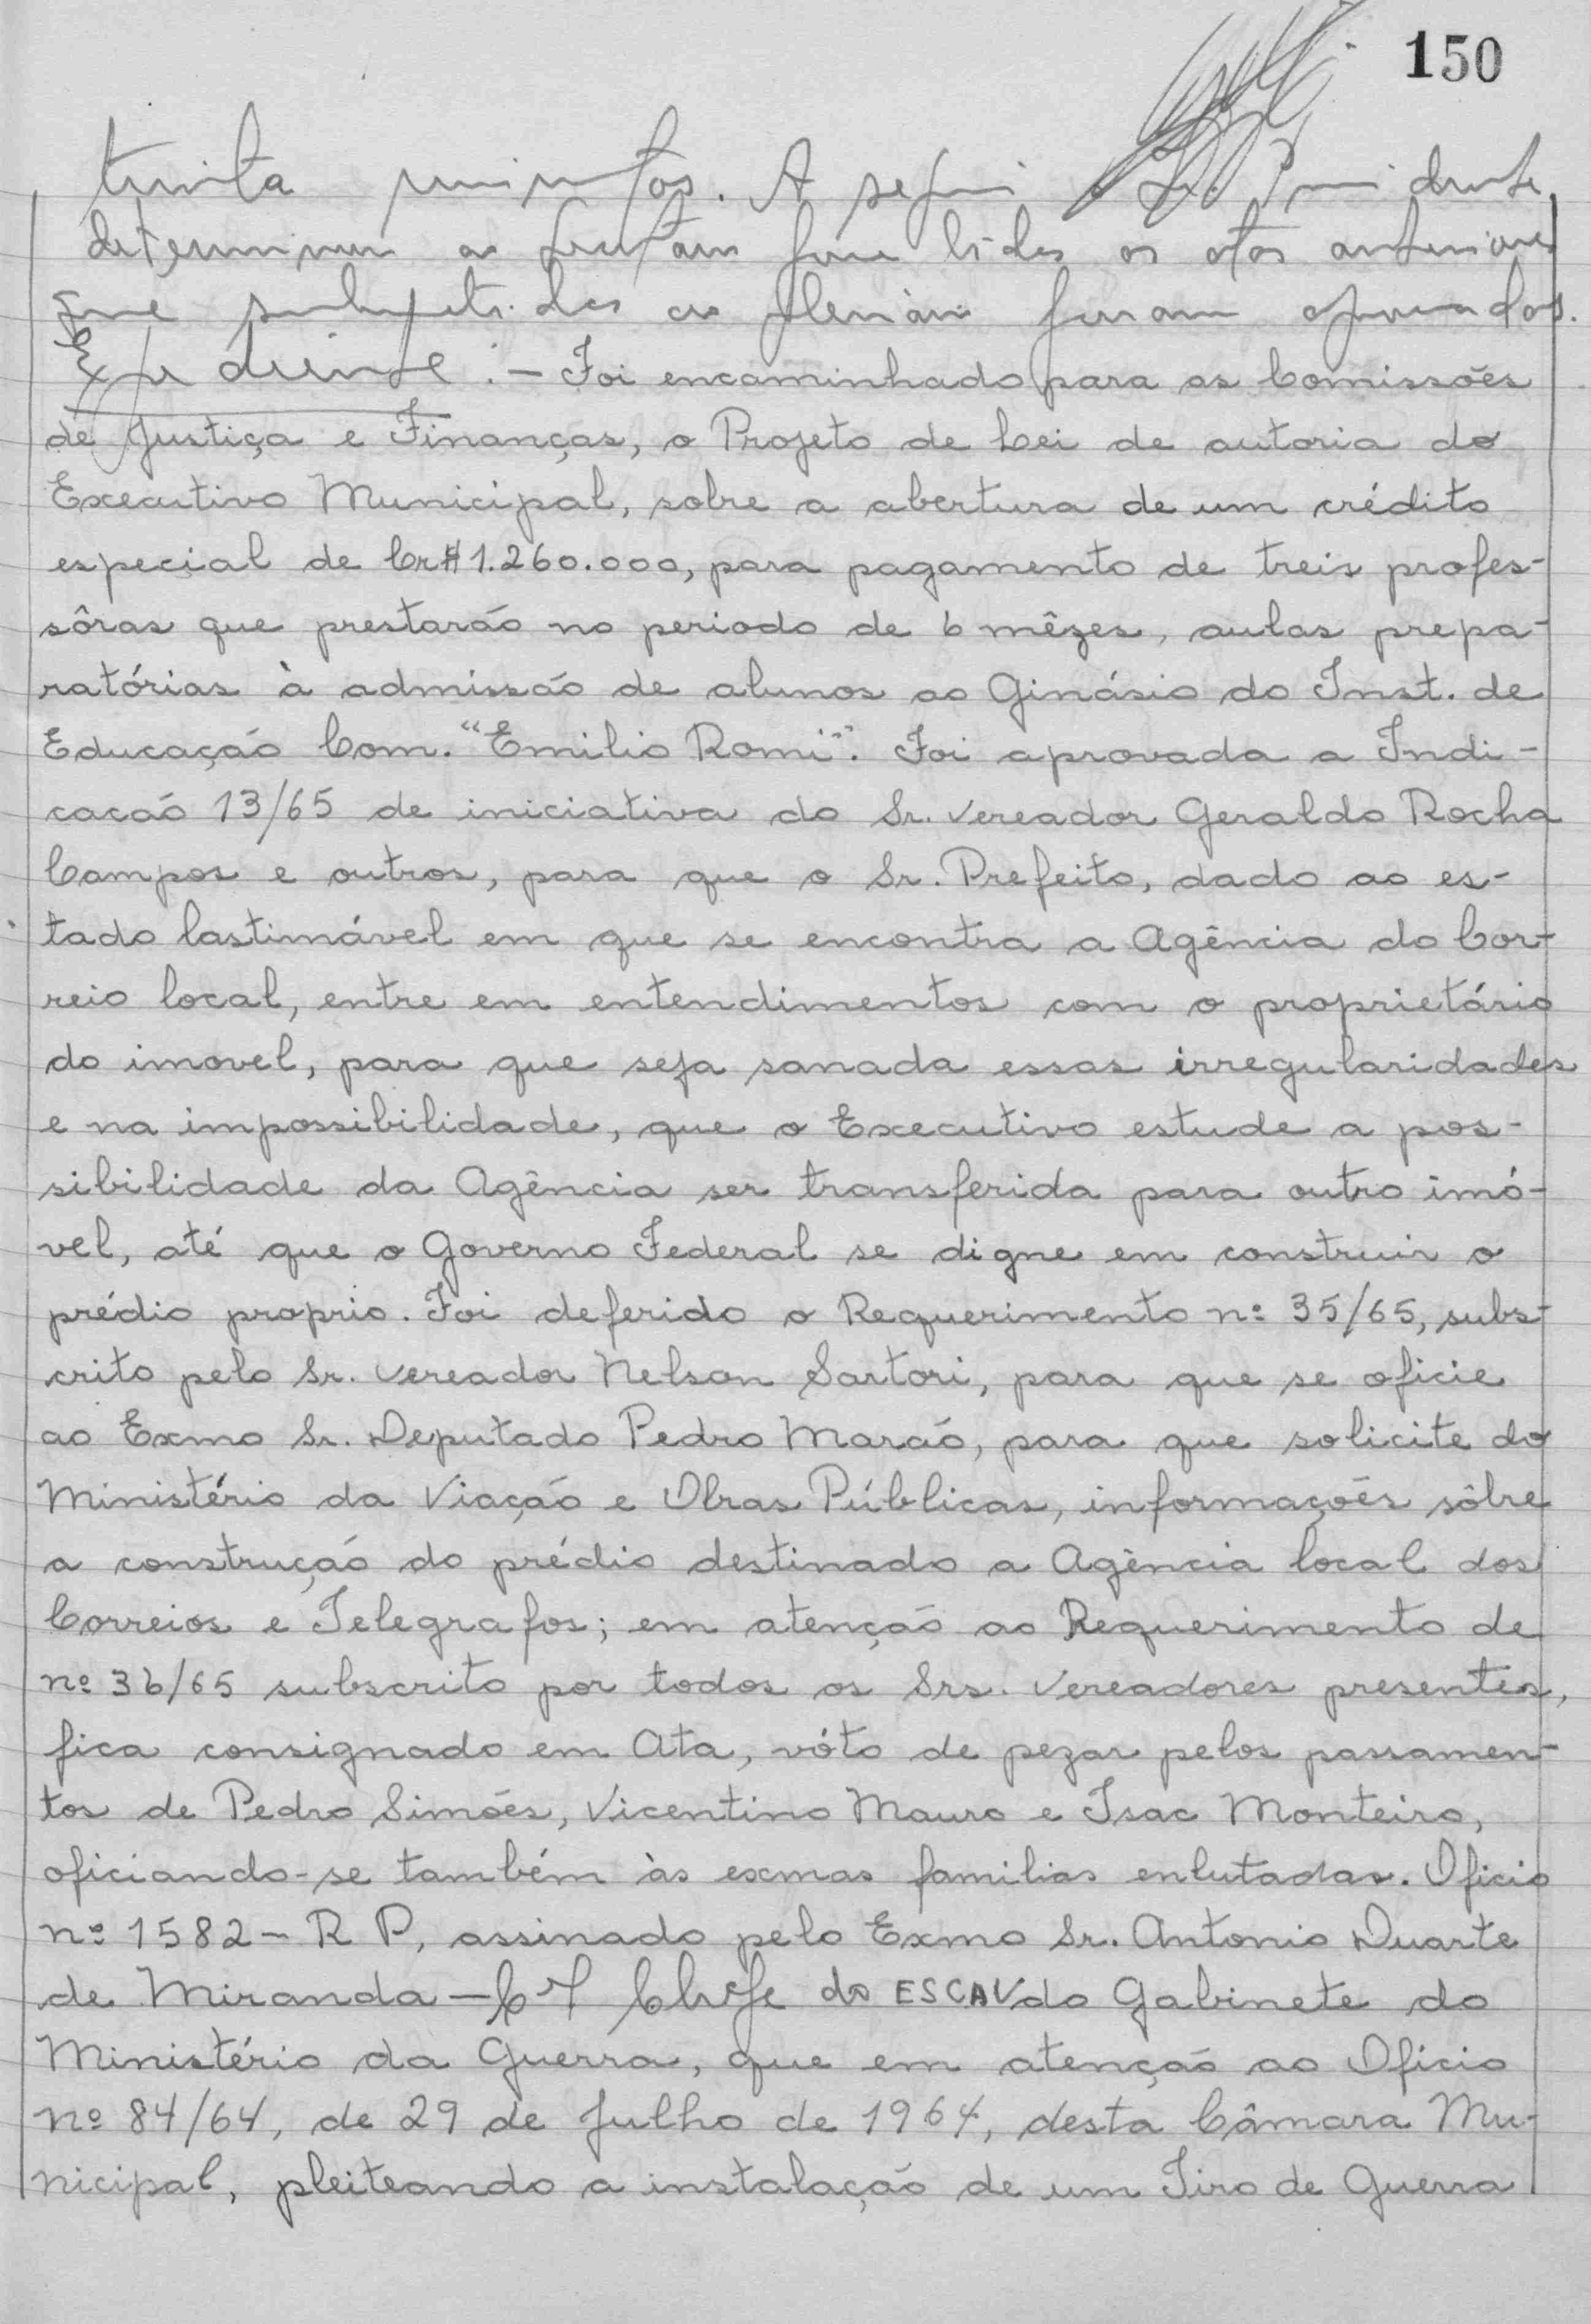 150
trinta minutos. A seguir o Sr. Presidente
determinou ao secretario fosse lidas as atas anteriores
que submetidas ao plenário foram aprovadas.
Expediente:- Foi encaminhado para as Comissões
de Justiça e Finanças, o Projeto de Lei de autoria do
Executivo Municipal, sobre a abertura de um crédito
especial de Cr$ 1.260.000, para pagamento de treis profes-
sôras que prestarão no periodo de 6 mêzes, aulas prepa-
ratórias à admissão de alunos ao Ginásio do Inst. de
Educação Com. "Emilio Romi". Foi aprovada a Indi-
cacão 13/65 de iniciativa do Sr. Vereador Geraldo Rocha
Campos e outros, para que o Sr. Prefeito, dado ao es-
tado lastimável em que se encontra a Agência do Cor-
reio local, entre em entendimentos com o proprietário
do imovel, para que seja sanada essas irregularidades
e na impossibilidade, que o Executivo estude a pos-
sibilidade da Agência ser transferida para outro imó-
vel, até que o Governo Federal se digne em construir o
prédio proprio. Foi deferido o Requerimento nº 35/65, subs-
crito pelo Sr. Vereador Nelson Sartori, para que se oficie
ao Exmo Sr. Deputado Pedro Marão, para que solicite do
Ministério da Viação e Obras Públicas, informações sôbre
a construção do prédio destinado a Agência local dos
Correios e Telegrafos; em atenção ao Requerimento de
nº 36/65 subscrito por todos os Srs. Vereadores presentes,
fica consignado em Ata, vóto de pezar pelos passamen-
tos de Pedro Simões, Vicentino Mauro e Isac Monteiro,
oficiando-se também às exmas familias enlutadas. Oficio
nº 1582 - R P, assinado pelo Exmo Sr. Antonio Duarte
de Miranda - Chefe da ESCAV do Gabinete do
Ministério da Guerra, que em atenção ao Oficio
nº 84/64, de 29 de Julho de 1964, desta Câmara Mu-
nicipal, pleiteando a instalação de um Tiro de Guerra